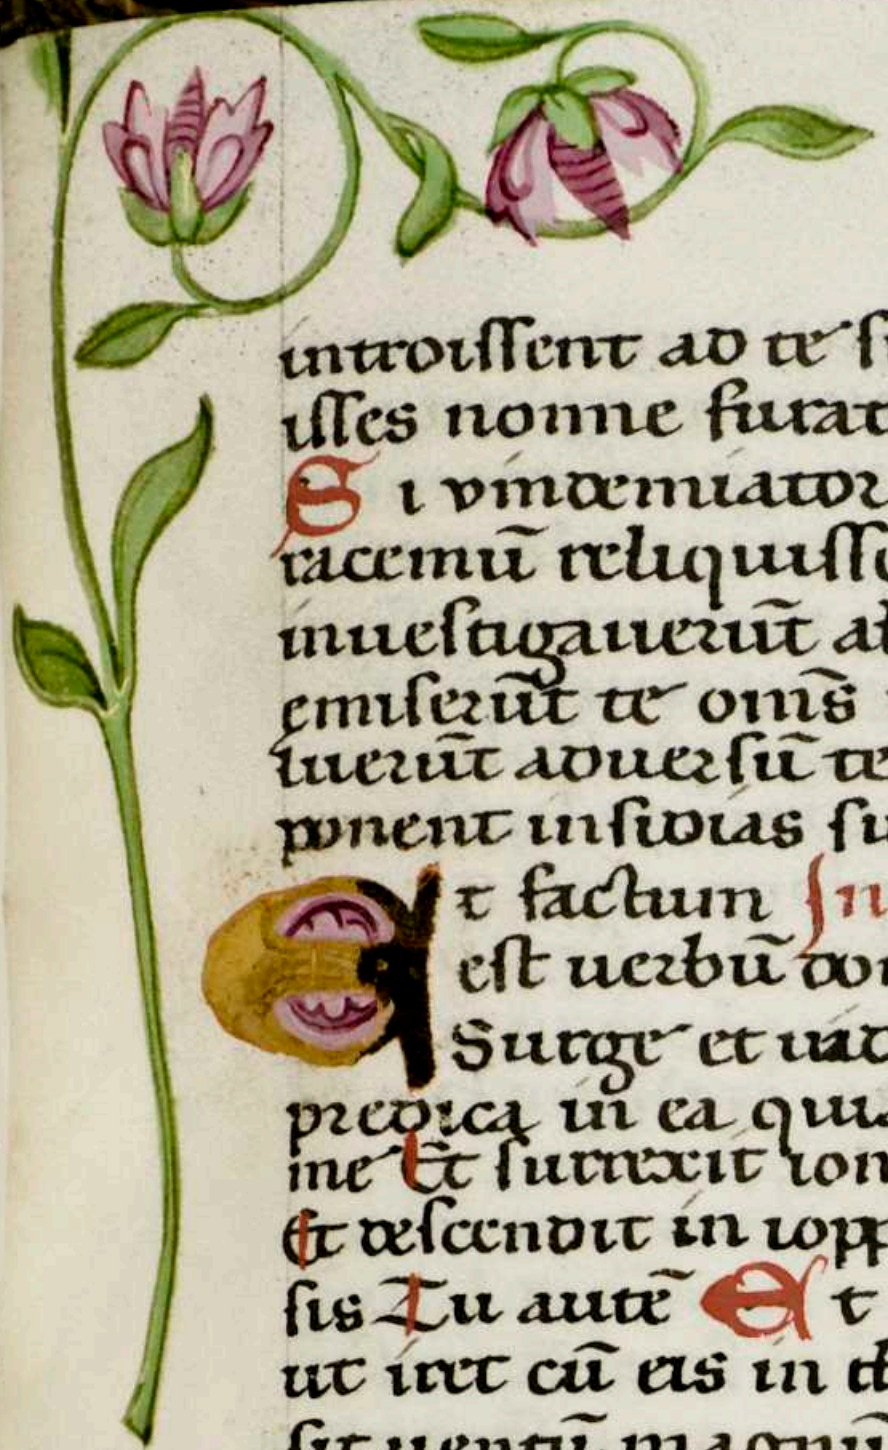 introissent ad te si
isses nonne furat
Si vindemiator
racemū reliquisse
inuestigauerūt
emiserūt te om̄s
luerūt aduersū te
ponent insidias su
Et factum In
est uerbū do
Surge et uad
predica in ea quia
me Et surrexit ion
Et descendit in iopp
sis Tu autē Et
ut iret cū eis in
sit uentū magnū